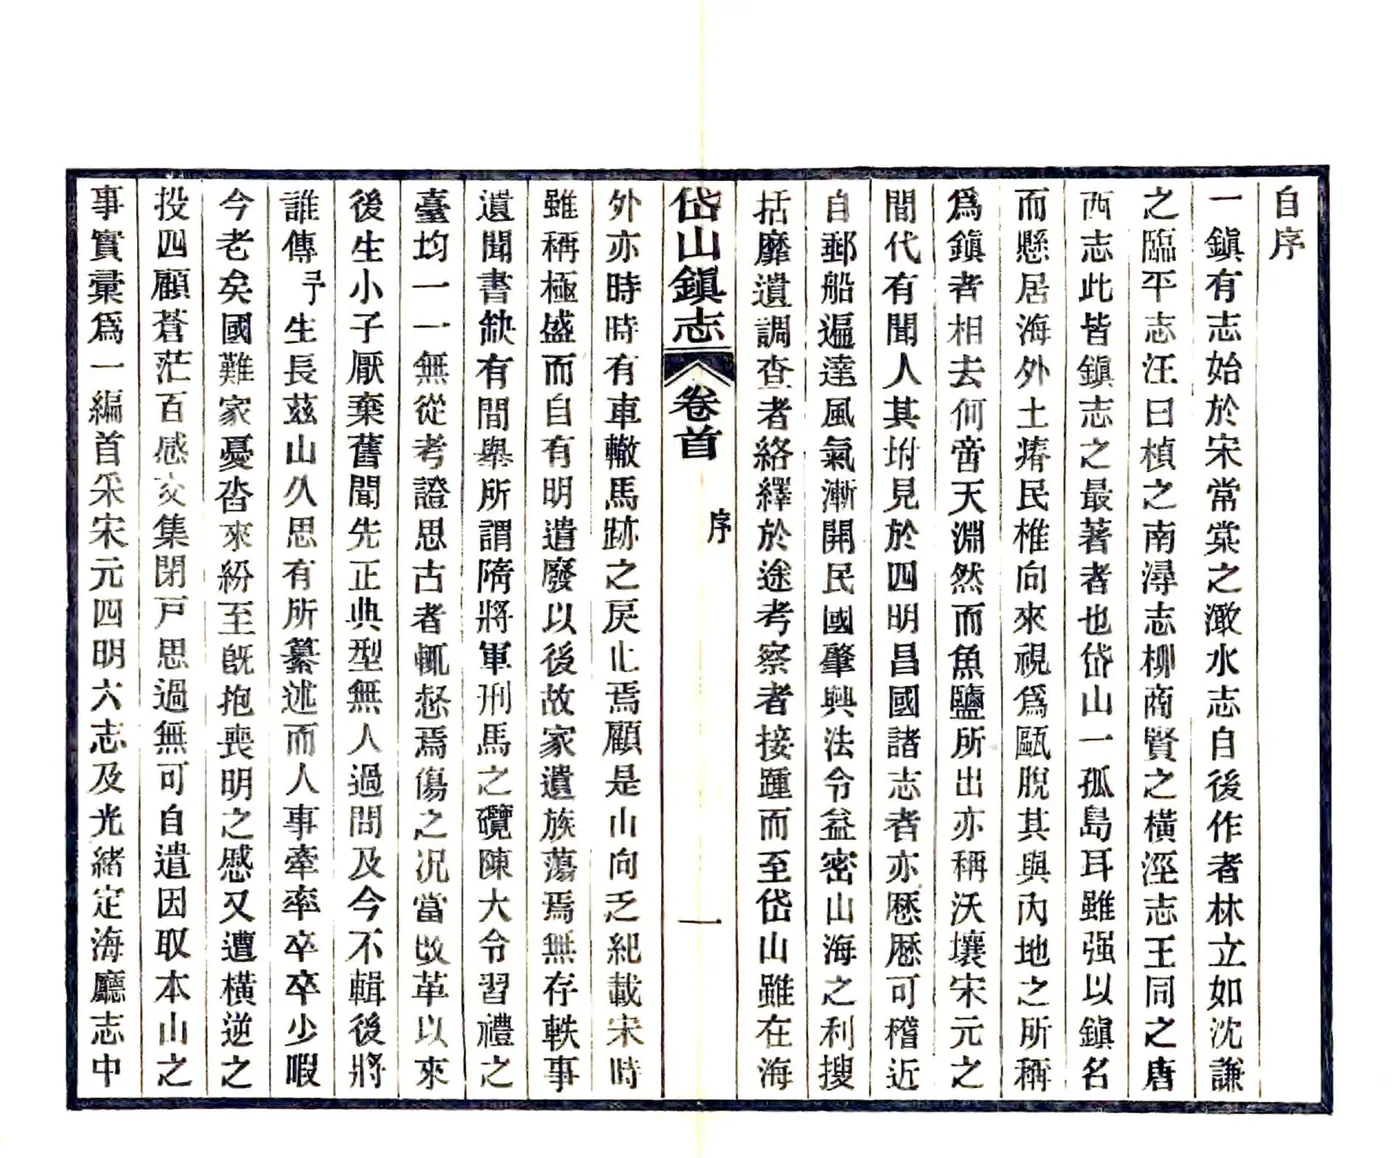 自序
一鎮有志始於宋常棠之澉水志自後作者林立如沈謙
之臨平志汪曰楨之南潯志柳商賢之橫涇志王同之唐
西志此皆鎮志之最著者也岱山一孤島耳雖强以鎮名
而懸居海外土瘠民椎向來視爲甌脫其與內地之所稱
爲鎮者相去何啻天淵然而魚鹽所出亦稱沃壤宋元之
間代有聞人其坿見於四明昌國諸志者亦歷歷可稽近
自郵船遍達風氣漸開民國肇興法令益密山海之利搜
括靡遺調查者絡繹於途考察者接踵而至岱山雖在海
岱山鎮志 卷首 序 一
外亦時時有車轍馬跡之戾止焉顧是山向乏紀載宋時
雖稱極盛而自有明遣廢以後故家遺族蕩焉無存軼事
遺聞書缺有間舉所謂隋將軍刑馬之䃹陳大令習禮之
臺均一一無從考證思古者輒惄焉傷之况當改革以來
後生小子厭棄舊聞先正典型無人過問及今不輯後將
誰傳予生長茲山久思有所纂述而人事牽率卒卒少暇
今老矣國難家憂沓來紛至旣抱喪明之慼又遭橫逆之
投四顧蒼茫百感交集閉戶思過無可自遣因取本山之
事實彙爲一編首采宋元四明六志及光緒定海廳志中